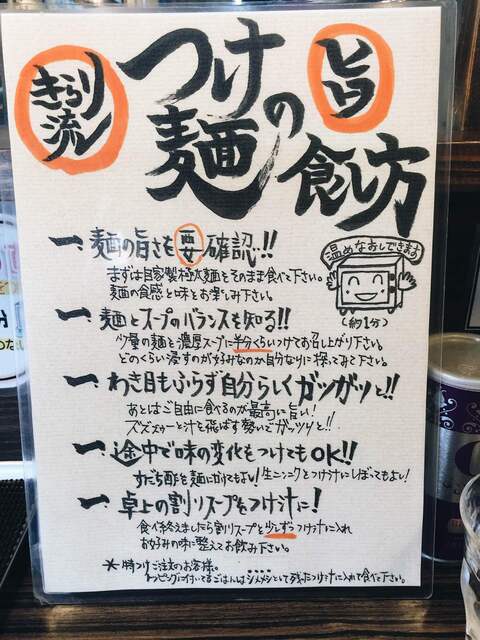 きらり流
つけ麺の旨ウ食し方
一、麺の旨さを要確認…!!
まずは自家製極太麺をそのまま食べて下さい。
麺の食感と味とお楽しみ下さい。
温めなおしできます
(約1分)
一、麺とスープのバランスを知る!!
少量の麺を濃厚スープに半分くらいつけてお召し上がり下さい。
どのくらい浸すのが好みなのか自分なりに探ってみて下さい。
一、わき目もふらず自分らしくガツガツと!!
あとはご自由に食べるのが最高に旨い!
ズズズァーと汁を飛ばす勢いでガッツリと!!
一、途中で味の変化をつけてもOK!!
すだち酢を麺にかけてもよし!生ニンニクとつけ汁にしぼってもよし!
一、卓上の割りスープをつけ汁に!
食べ終えましたら割りスープと少しずつつけ汁に入れ
お好みの味に整えてお飲み下さい。
*特つけご注文のお客様。
トッピングに付いてるごはんはシメメシとして残ったつけ汁に入れて食べて下さい。